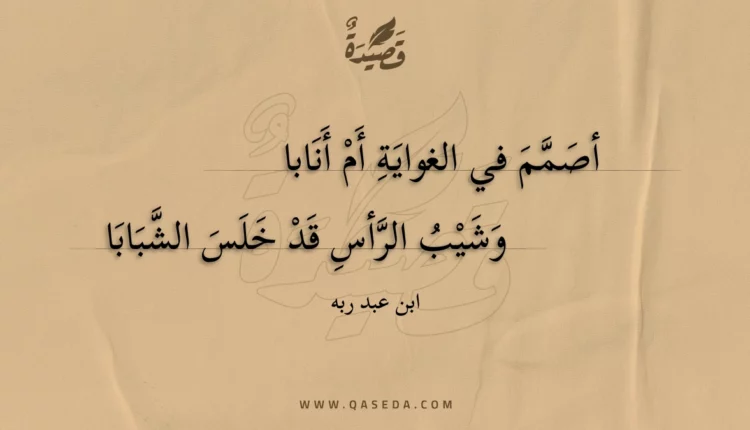 قَصِيدَةٌ
أصَمَّمَ في الغوايَةِ أَمْ أَنَابا
وَشَيْبُ الرَّأسِ قَدْ خَلَسَ الشَّبَابَا
ابن عبد ربه
WWW.QASEDA.COM